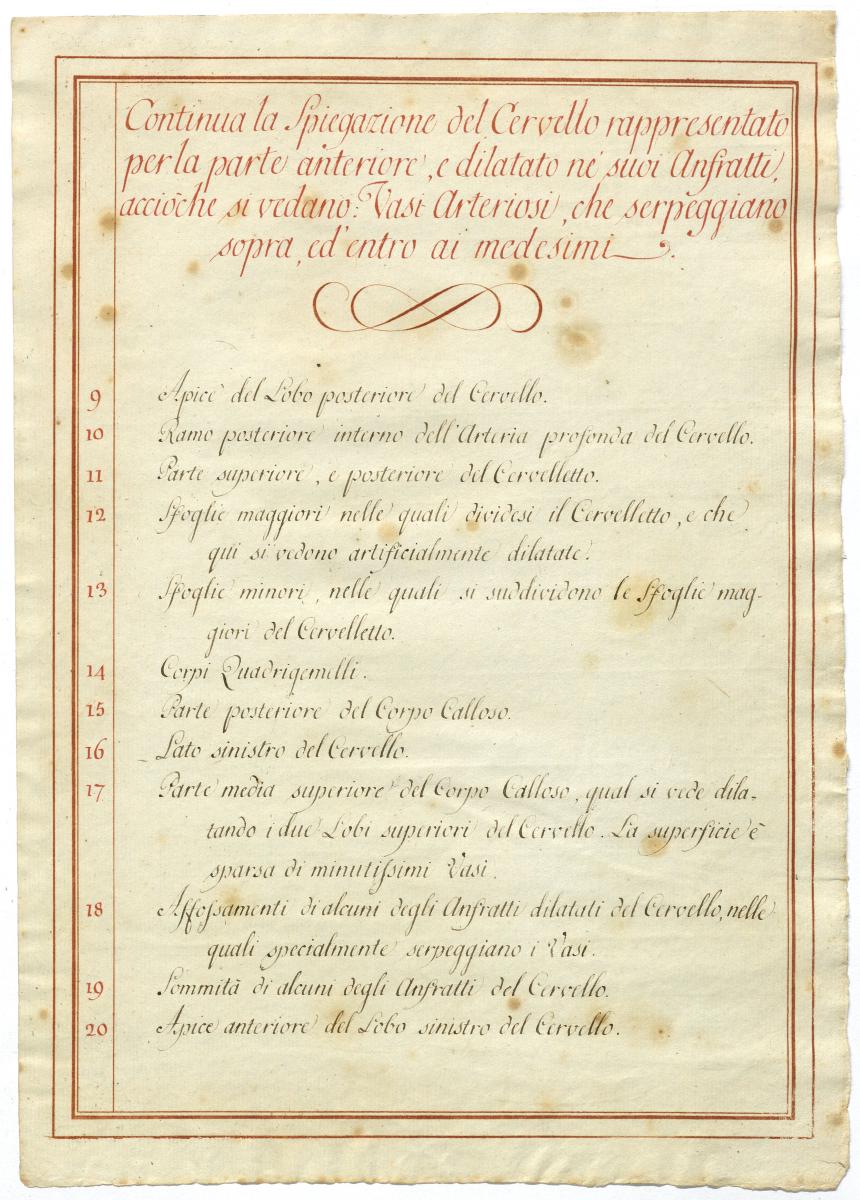 Continua la Spiegazione del Cervello rappresentato
per la parte anteriore, e dilatato ne' suoi Anfratti,
acciòche si vedano i Vasi Arteriosi, che serpeggiano
sopra, ed'entro ai medesimi.
9 Apice del Lobo posteriore del Cervello.
10 Ramo posteriore interno dell'Arteria profonda del Cervello.
11 Parte superiore, e posteriore del Cervelletto.
12 Sfoglie maggiori nelle quali dividesi il Cervelletto, e che
qui si vedono artificialmente dilatate.
13 Sfoglie minori, nelle quali si suddividono le Sfoglie mag-
giori del Cervelletto.
14 Corpi Quadrigemelli.
15 Parte posteriore del Corpo Calloso.
16 Lato sinistro del Cervello.
17 Parte media superiore del Corpo Calloso, qual si vede dila-
tando i due Lobi superiori del Cervello. La superficie è
sparsa di minutissimi Vasi.
18 Affossamenti di alcuni degli Anfratti dilatati del Cervello, nelle
quali specialmente serpeggiano i Vasi.
19 Sommità di alcuni degli Anfratti del Cervello.
20 Apice anteriore del Lobo sinistro del Cervello.